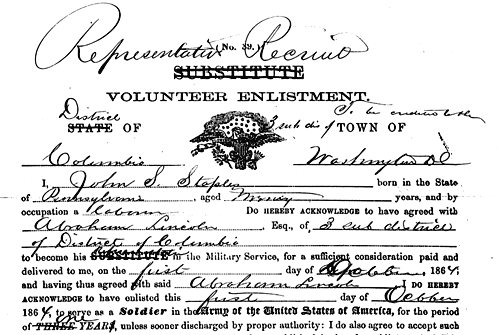 Representative (No. 39.) Recruit
SUBSTITUTE
VOLUNTEER ENLISTMENT.
District To be credited to the
STATE OF 3 sub dis of TOWN OF
Columbia Washington DC
I, John S. Staples born in the State
of Pennsylvania, aged Twenty years, and by
occupation a Laborer DO HEREBY ACKNOWLEDGE to have agreed with
Abraham Lincoln Esq., of 3 sub district
of District of Columbia
to become his SUBSTITUTE in the Military Service, for a sufficient consideration paid and
delivered to me, on the first day of October, 1864;
and having thus agreed with said Abraham Lincoln I DO HEREBY
ACKNOWLEDGE to have enlisted this first day of October
1864, to serve as a Soldier in the Army of the United States of America, for the period
of THREE YEARS, unless sooner discharged by proper authority: I do also agree to accept such